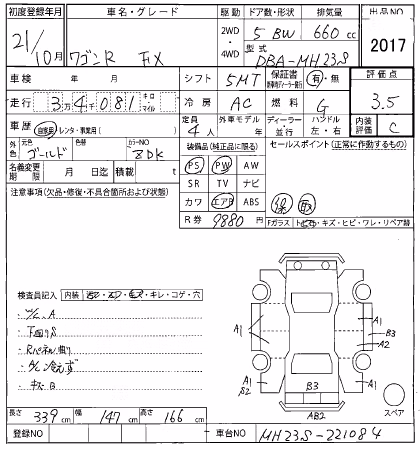 初度登録年月 車名・グレード 駆動 ドア数・形状 排気量 出品NO
21/10月 ワゴンR FX 2WD ・ 4WD 5 BW 660 cc 2017
型式 DBA-MH23S
車検 年 月 シフト 5MT 保証書 有・無 評価点
走行 3万4千081 キロ・マイル 冷房 AC 燃料 G 3.5
車歴 自家用・レンタ・事業用( ) 定員 4人 外車モデル 年 ディーラー・並行 ハンドル 左・右 内装評価 C
外色 元色 ゴールド 色替 カラーNO ZDK 装備品(純正品に限る) セールスポイント(正常に作動するもの)
名義変更期限 月 日迄 積載 t PS PW AW
注意事項(欠品・修復・不具合箇所および状態) SR TV ナビ
カワ エアB ABS 保 取
R券 9880円 Fガラス トビ石・キズ・ヒビ・ワレ・リペア跡
検査員記入 内装 キレ・コゲ・穴
下回りS
キズB
A1 A1 A1
B3 A2
A1 B2 B3 A1
AB2 スペア
長さ 339 cm 幅 147 cm 高さ 166 cm
登録NO 車台NO MH23S-221084